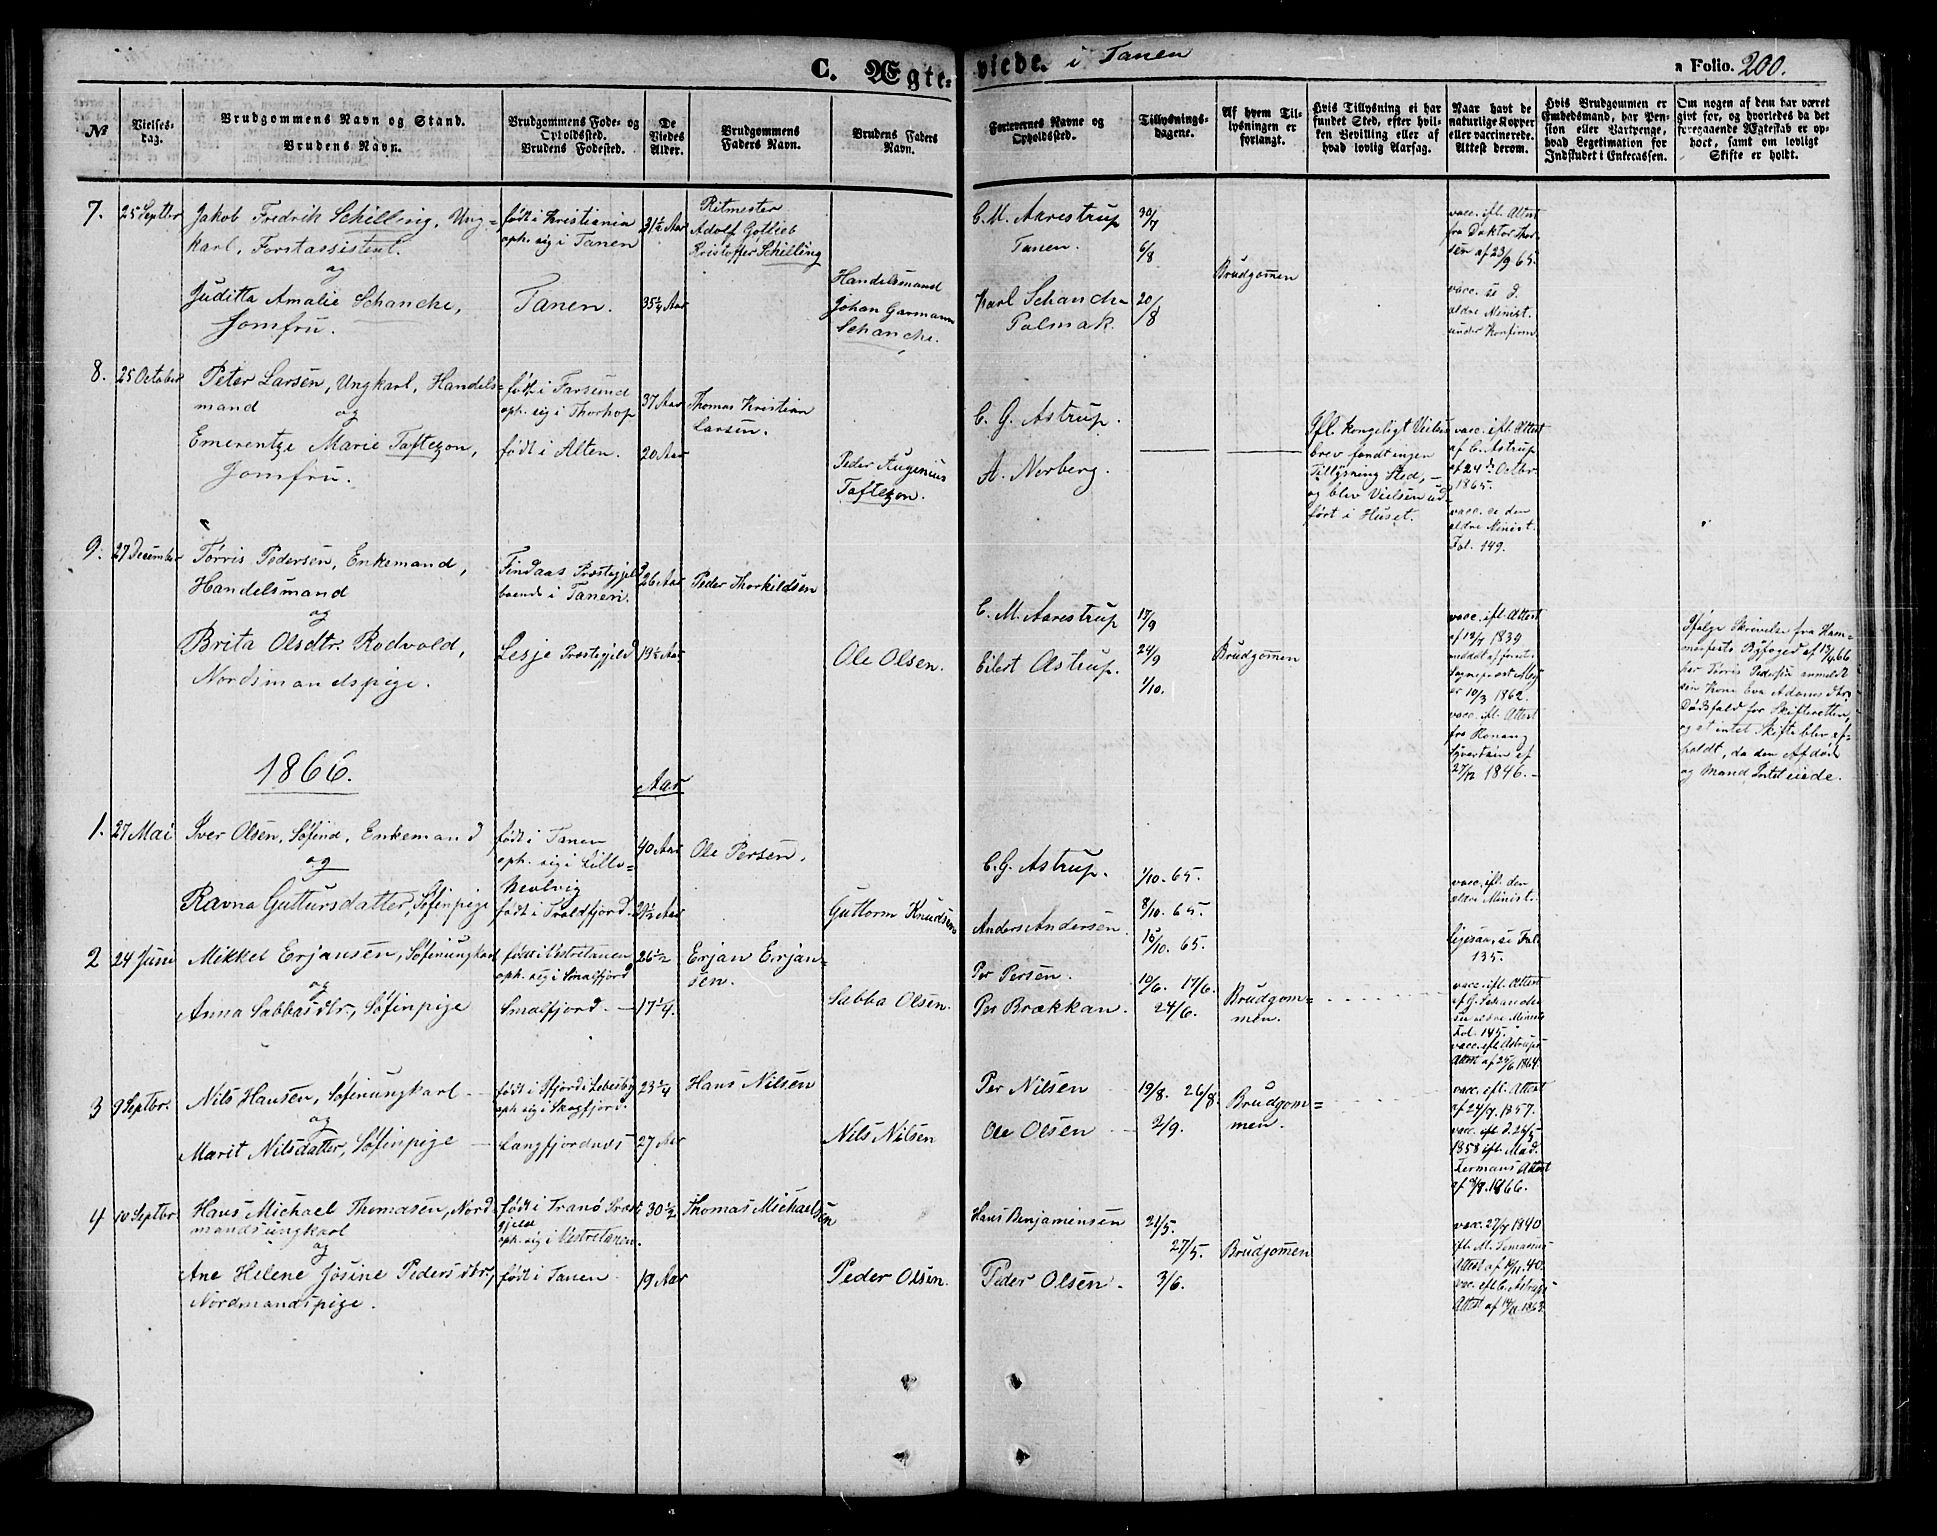 C. Ægteviede. i Tanen
a Folio. 200.
№
Vielsesdag.
Brudgommens Navn og Stand.
Brudens Navn.
Brudgommens Føde- og
Opholdssted.
Brudens Fødested.
De
Viedes
Alder.
Brudgommens
Faders Navn.
Brudens Faders
Navn.
Forlovernes Navne og
Opholdssted.
Tillysnings-
dagene.
Af hvem Til-
lysningen er
forlangt.
Hvis Tillysning ei har
fundet Sted, efter hvil-
ken Bevilling eller af
hvad lovlig Aarsag.
Naar havt de
naturlige Kopper
eller vaccinerede.
Attest derom.
Hvis Brudgommen er
Embedsmand, har Pen-
sion eller Vartpenge,
hvad Legitimation for
Indskudet i Enkecassen.
Om nogen af dem har været
gift før, og hvorledes da det
foregaaende Ægteskab er op-
hørt, samt om lovligt
Skifte er holdt.
7. 25 Septber
Jakob Fredrik Schilling, Ung-
karl, Forstassistent.
og
Juditta Amalie Schanche,
Jomfru.
født i Kristiania
oph. sig i Tanen
Tanen.
31½ Aar
35¼ Aar
Ritmester
Adolf Gotlieb
Kristoffer Schilling
Handelsmand
Johan Garmann
Schanche.
C. M. Aarestrup
Tanen.
Karl Schanche
Polmak.
30/7
6/8
20/8
Brudgommen
vacc. ifl. Attest
fra Doktor Thor-
sen af 23/9 65.
vacc. se d.
ældre Minist.
under Konfirm
8. 25 October
Peter Larsen, Ungkarl, Handels-
mand og
Emerentze Marie Taftezon,
Jomfru.
født i Farsund
oph. sig i Thorhop
født i Alten.
37 Aar
20 Aar
Thomas Kristian
Larsen.
Peder Augenius
Taftezon.
C. G. Astrup.
A. Norberg.
Ifl. Kongeligt Vielses
brev fandt ingen
Tillysning Sted,
og blev Vielsen ud-
ført i Huset.
vacc. ifl. Attest
af C. Astrup
af 24de Octbr
1865.
vacc. se den
ældre Minist.
Fol. 149.
9. 27 December
Tørris Pedersen, Enkemand,
Handelsmand
og
Brita Olsdtr. Rodvold,
Nordsmandspige.
Findaas Præstegjeld
boende i Tanen.
Lesje Præstegjeld
26 Aar
19½ Aar
Peder Thorkildsen
Ole Olsen.
C. M. Aarestrup
Eilert Astrup.
17/9
24/9
1/10.
Brudgommen
vacc. ifl. Attest
af 12/7 1839
meddelt af forret.
Sogneprest Mey
er 10/3 1862.
vacc. ifl. Attest
fra
af
27/12 1846.
Ifølge Skrivelse fra Ham-
merfests Byfoged af 13/4 66
har Tørris Pedersen anmeldt
sin Kone Eva Adamsdtrs
Dødsfald for Skifteretten,
og at intet Skifte blev af-
holdt, da den Afdøde
og Mand Intet eiede.
1866.
Aar
1. 27 Mai
Iver Olsen, Søfind, Enkemand
og
Ravna Guttursdatter, Søfinpige
født i Tanen
oph. sig i Lille-
Kevlvig
født i Troldfjord.
40 Aar
21½ Aar
Ole Persen.
Guttorm Knudsen
C. G. Astrup.
Anders Andersen.
1/10. 65.
8/10. 65.
15/10. 65.
vacc. ifl. den
ældre Minist.
Ligesaa, se Fol.
135.
2 24 Juni
Mikkel Erjansen, Søfinungkarl
og
Anna Sabbasdtr., Søfinpige
født i Vestretanen
oph. sig i Smalfjord
Smalfjord.
26½
17¼.
Erjan Erjan-
sen.
Sabba Olsen.
Per Persen.
Per Brækkan.
10/6. 17/6.
24/6.
Brudgom-
men.
vacc. ifl. Attest
af G. Schanche
se ældre Minist.
Fol. 145.
vacc. ifl. Astrups
Attest af 25/6 1864.
3 9 Septbr.
Nils Hansen, Søfinungkarl
og
Marit Nilsdatter, Søfinpige
født i Ifjord i Lebesby
oph. sig i Skogfjord.
Langfjordnes
23¼
27 Aar
Hans Nilsen
Nils Nilsen
Per Nilsen
Ole Olsen
19/8. 26/8.
2/9.
Brudgom-
men.
vacc. ifl. Attest
af 24/7 1857.
vacc. ifl. d. 26/5
1858 ifl. Mad.
Attest
1866.
4 10 Septbr.
Hans Michael Thomasen, Nord-
mandsungkarl
og
Ane Helene Josine Pedersdtr,
Nordmandspige.
født i Tranø Præst
gjeld
oph. sig i Vestretanen.
født i Tanen.
30½
19 Aar
Thomas Michaelsen
Peder Olsen.
Hans Benjaminsen
Peder Olsen.
21/5.
27/5.
3/6.
Brudgommen
vacc. 27/7 1840
ifl. M.
Attest af 14/11. 40.
vacc. ifl. C. Astrups
Attest af 14/11. 1863.